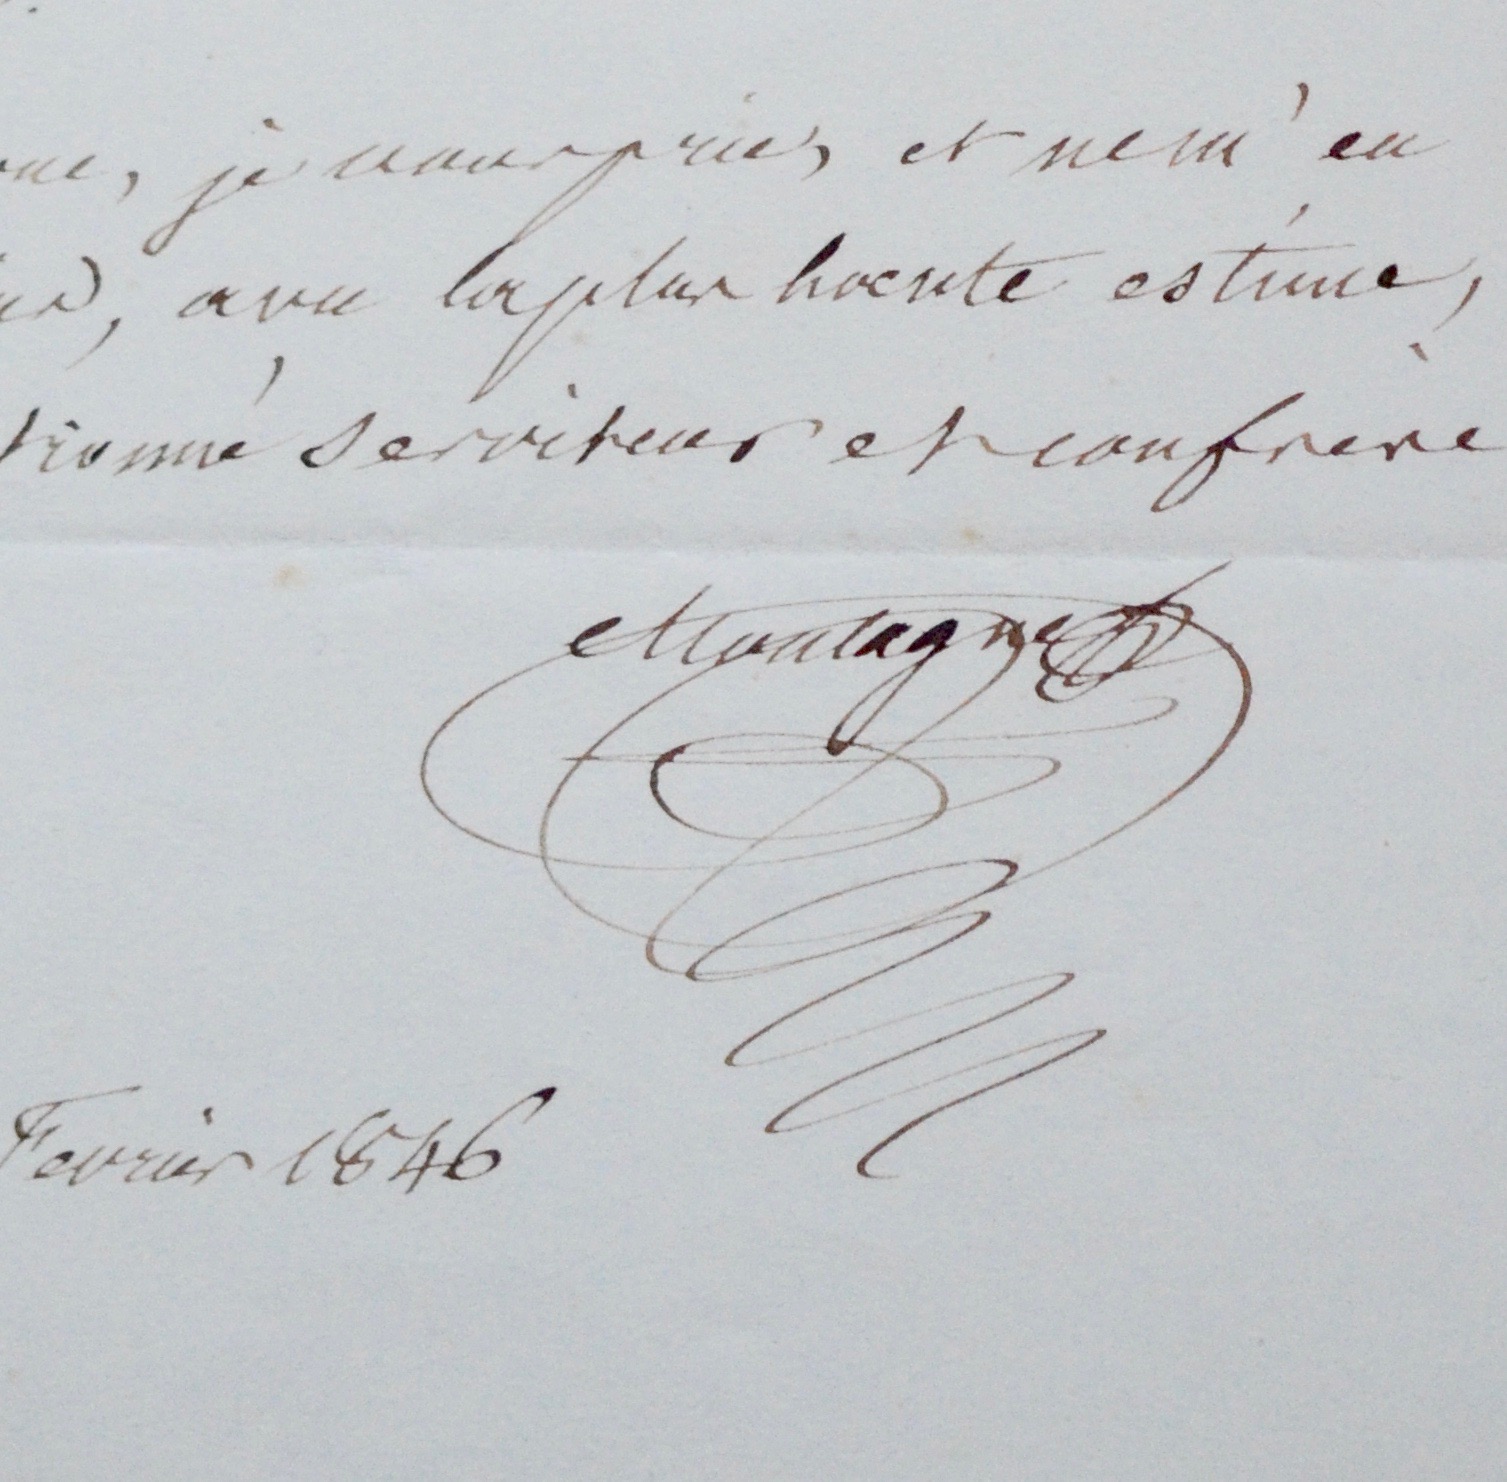 je vous prie, et ne m'en
, avec la plus haute estime,
tionné serviteur et confrère
Montagne
Fevrier 1846